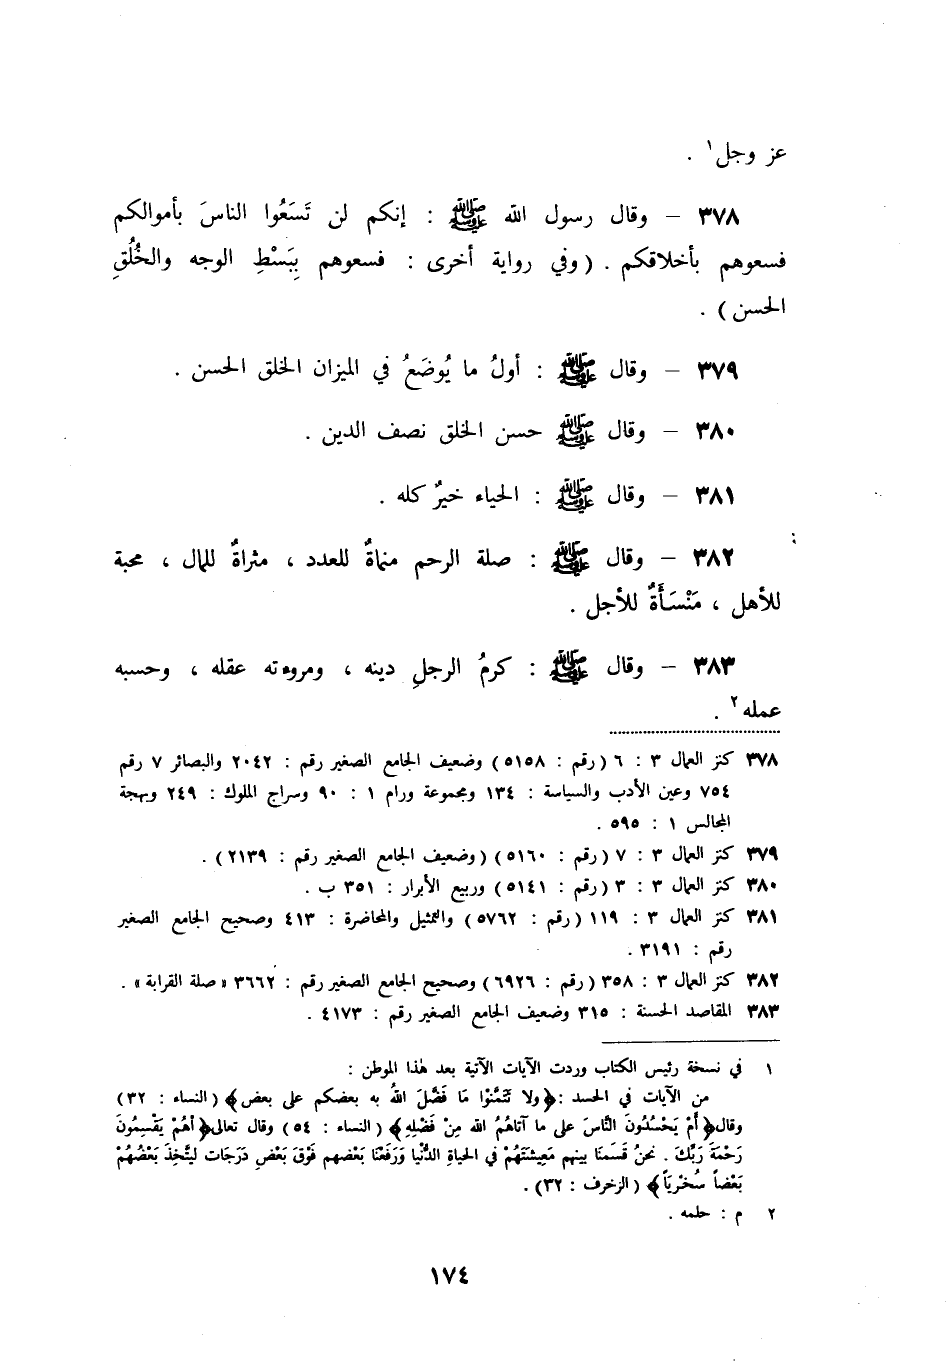 عز وجل١ .
٣٧٨ – وقال رسول الله ﷺ : إنكم لن تَسَعُوا الناسَ بأموالكم
فسعوهم بأخلاقكم . ( وفي رواية أخرى : فسعوهم بِبَسْطِ الوجه والخُلُقِ
الحسن ) .
٣٧٩ – وقال ﷺ : أولُ ما يُوضَعُ في الميزان الخلق الحسن .
٣٨٠ – وقال ﷺ حسن الخلق نصف الدين .
٣٨١ – وقال ﷺ : الحياء خيرٌ كله .
٣٨٢ – وقال ﷺ : صلة الرحم مناةٌ للعدد ، مثراةٌ للمال ، محبة
للأهل ، مَنْسَأَةٌ للأجل .
٣٨٣ – وقال ﷺ : كرمُ الرجلِ دينه ، ومروءته عقله ، وحسبه
عمله٢ .
٣٧٨ كنز العمال ٣ : ٦ ( رقم : ٥١٥٨ ) وضعيف الجامع الصغير رقم : ٢٠٤٢ والبصائر ٧ رقم
٧٥٤ وعين الأدب والسياسة : ١٣٤ ومجموعة ورام ١ : ٩٠ وسراج الملوك : ٢٤٩ وبهجة
المجالس ١ : ٥٩٥ .
٣٧٩ كنز العمال ٣ : ٧ ( رقم : ٥١٦٠ ) ( وضعيف الجامع الصغير رقم : ٢١٣٩ ) .
٣٨٠ كنز العمال ٣ : ٣ ( رقم : ٥١٤١ ) وربيع الأبرار : ٣٥١ ب .
٣٨١ كنز العمال ٣ : ١١٩ ( رقم : ٥٧٦٢ ) والتمثيل والمحاضرة : ٤١٣ وصحيح الجامع الصغير
رقم : ٣١٩١ .
٣٨٢ كنز العمال ٣ : ٣٥٨ ( رقم : ٦٩٢٦ ) وصحيح الجامع الصغير رقم : ٣٦٦٢ « صلة القرابة » .
٣٨٣ المقاصد الحسنة : ٣١٥ وضعيف الجامع الصغير رقم : ٤١٧٣ .
١ في نسخة رئيس الكتاب وردت الآيات الآتية بعد هٰذا الموطن :
من الآيات في الحسد : ﴿ ولا تَتَمنَّوْا مَا فَضَّلَ اللهُ به بعضكم على بعض ﴾ ( النساء : ٣٢ )
وقال ﴿ أَمْ يَحْسُدُونَ النَّاسَ على ما آتاهُمُ الله مِنْ فَضْلِهِ ﴾ ( النساء : ٥٤ ) وقال تعالى ﴿ أهُمْ يَقْسِمُونَ
رَحْمَةَ رَبِّكَ . نحنُ قَسَمنَا بينهم مَعِيشَتَهُمْ في الحياةِ الدُّنْيا وَرَفَعْنَا بَعْضَهم فَوْقَ بَعْضٍ دَرَجَات لِيَتَّخِذَ بَعْضُهُمْ
بَعْضاً سُخْرِيّاً ﴾ ( الزخرف : ٣٢ ) .
٢ م : حلمه .
١٧٤